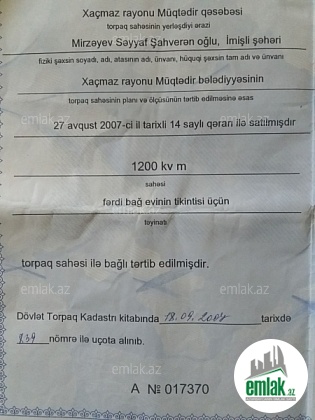 Xaçmaz rayonu Müqtədir qəsəbəsi
torpaq sahəsinin yerləşdiyi ərazi
Mirzəyev Səyyaf Şahverən oğlu, İmişli şəhəri
fiziki şəxsin soyadı, adı, atasının adı, ünvanı, hüquqi şəxsin tam adı və ünvanı
Xaçmaz rayonu Müqtədir bələdiyyəsinin
torpaq sahəsinin planı və ölçüsünün tərtib edilməsinə əsas
27 avqust 2007-ci il tarixli 14 saylı qərarı ilə satılmışdır
emlak.az
1200 kv m
sahəsi
fərdi bağ evinin tikintisi üçün
təyinatı
torpaq sahəsi ilə bağlı tərtib edilmişdir.
emlak.az
Dövlət Torpaq Kadastrı kitabında 18.09.2007 tarixdə
839 nömrə ilə uçota alınıb.
A № 017370
emlak.az